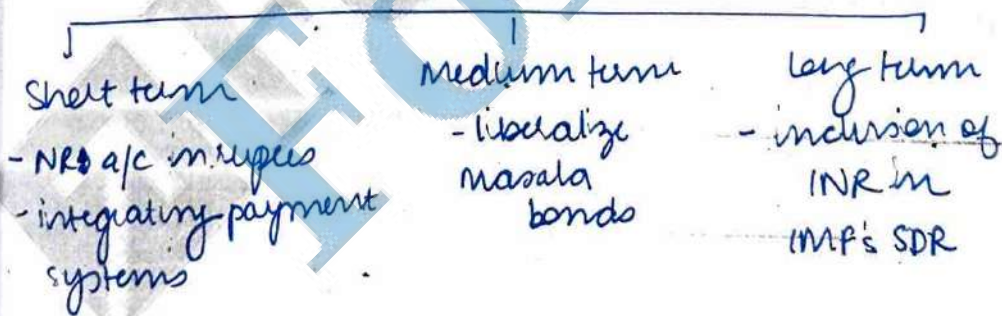 Short term
- NRI a/c in rupees
- integrating payment
systems
Medium term
- liberalize
masala
bonds
Long term
- inclusion of
INR in
IMF's SDR